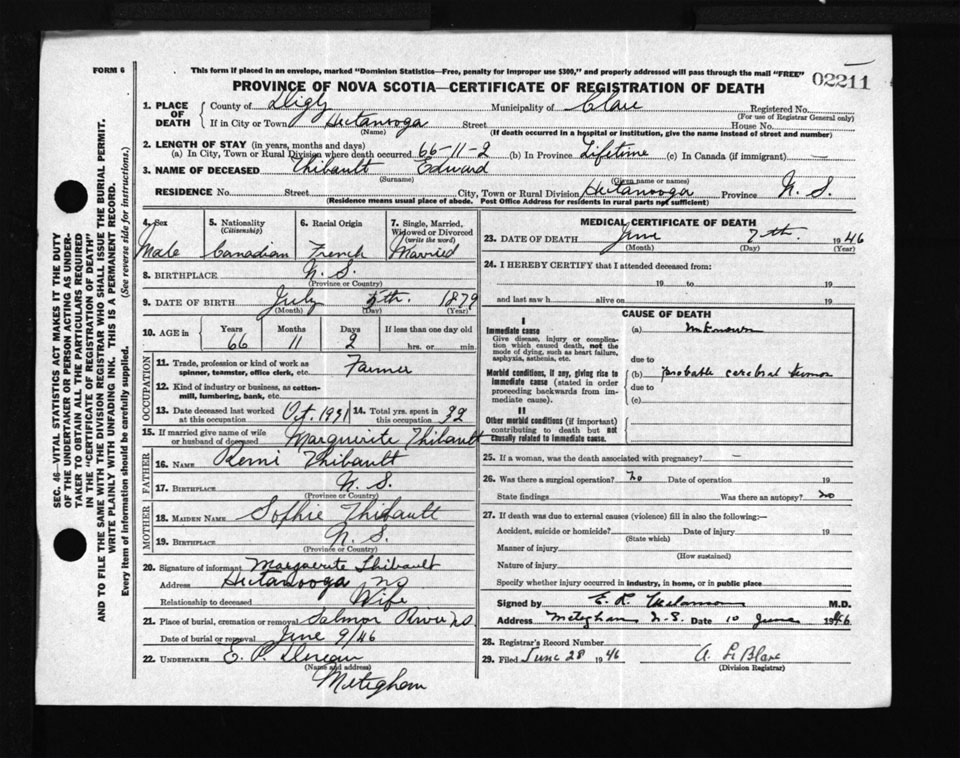 FORM 6
This form if placed in an envelope, marked "Dominion Statistics—Free, penalty for improper use $300," and properly addressed will pass through the mail "FREE"
02211
PROVINCE OF NOVA SCOTIA—CERTIFICATE OF REGISTRATION OF DEATH
1. PLACE OF DEATH { County of Digby Municipality of Clare Registered No.
(For use of Registrar General only)
If in City or Town Hectanooga Street House No.
(Name) (If death occurred in a hospital or institution, give the name instead of street and number)
2. LENGTH OF STAY (in years, months and days)
(a) In City, Town or Rural Division where death occurred 66-11-2 (b) In Province Lifetime (c) In Canada (if immigrant) —
3. NAME OF DECEASED Thibault Edward
(Surname) (Given name or names)
RESIDENCE No. Street City, Town or Rural Division Hectanooga Province N. S.
(Residence means usual place of abode. Post Office Address for residents in rural parts not sufficient)
4. Sex Male
5. Nationality (Citizenship) Canadian
6. Racial Origin French
7. Single, Married, Widowed or Divorced (write the word) Married
8. BIRTHPLACE N. S.
(Province or Country)
9. DATE OF BIRTH July 5th. 1879
(Month) (Day) (Year)
10. AGE in Years Months Days If less than one day old
66 11 2 hrs. or min.
OCCUPATION
11. Trade, profession or kind of work as spinner, teamster, office clerk, etc. Farmer
12. Kind of industry or business, as cotton-mill, lumbering, bank, etc.
13. Date deceased last worked at this occupation Oct. 1931
14. Total yrs. spent in this occupation 32
15. If married give name of wife or husband of deceased Marguerite Thibault
FATHER
16. NAME Remi Thibault
17. BIRTHPLACE N. S.
(Province or Country)
MOTHER
18. MAIDEN NAME Sophie Thibault
19. BIRTHPLACE N. S.
(Province or Country)
20. Signature of informant Marguerite Thibault
Address Hectanooga NS
Relationship to deceased Wife
21. Place of burial, cremation or removal Salmon River NS
Date of burial or removal June 9/46
22. UNDERTAKER E. P.
(Name and address)
Meteghan
MEDICAL CERTIFICATE OF DEATH
23. DATE OF DEATH June 7th. 1946
(Month) (Day) (Year)
24. I HEREBY CERTIFY that I attended deceased from:
19 to 19
and last saw h alive on 19
CAUSE OF DEATH
I
Immediate cause (a) unknown
Give disease, injury or complication which caused death, not the mode of dying, such as heart failure, asphyxia, asthenia, etc.
due to
Morbid conditions, if any, giving rise to immediate cause (stated in order proceeding backwards from immediate cause). (b) probable cerebral tumor
due to
(c)
II
Other morbid conditions (if important) contributing to death but not causally related to immediate cause.
25. If a woman, was the death associated with pregnancy? —
26. Was there a surgical operation? No Date of operation 19
State findings Was there an autopsy? no
27. If death was due to external causes (violence) fill in also the following:—
Accident, suicide or homicide? Date of injury 19
(State which)
Manner of injury
(How sustained)
Nature of injury
Specify whether injury occurred in industry, in home, or in public place
Signed by E. R. Melanson M.D.
Address Meteghan N.S. Date 10 June 1946
28. Registrar's Record Number
29. Filed June 28 1946 A. LeBlanc
(Division Registrar)
SEC. 46—VITAL STATISTICS ACT MAKES IT THE DUTY
OF THE UNDERTAKER OR PERSON ACTING AS UNDER-
TAKER TO OBTAIN ALL THE PARTICULARS REQUIRED
IN THE "CERTIFICATE OF REGISTRATION OF DEATH"
AND TO FILE THE SAME WITH THE DIVISION REGISTRAR WHO SHALL ISSUE THE BURIAL PERMIT.
WRITE PLAINLY WITH UNFADING INK. THIS IS A PERMANENT RECORD.
Every item of information should be carefully supplied. (See reverse side for instructions.)